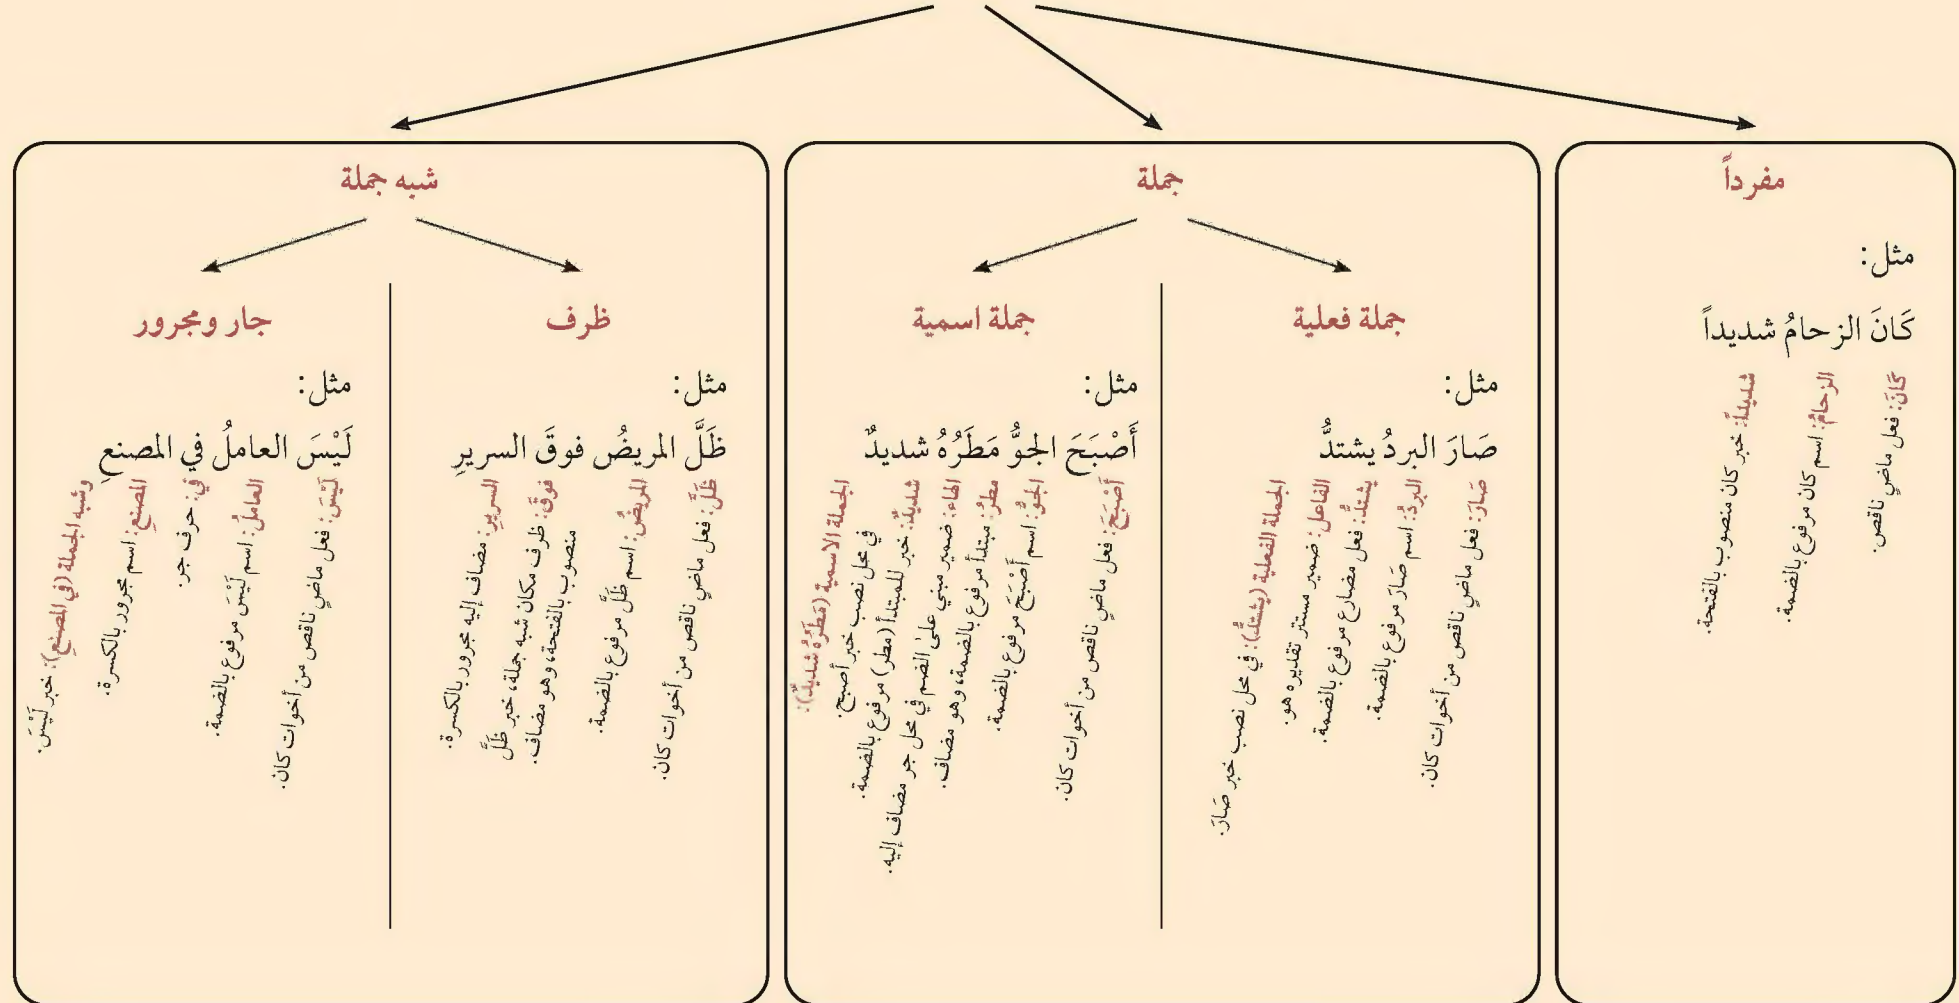 مفرداً
مثل:
كَانَ الزحامُ شديداً
كَانَ: فعل ماضٍ ناقص.
الزحامُ: اسم كان مرفوع بالضمة.
شديداً: خبر كان منصوب بالفتحة.
جملة
جملة فعلية
مثل:
صَارَ البردُ يشتدُّ
صَارَ: فعل ماضٍ ناقص من أخوات كان.
البردُ: اسم صَارَ مرفوع بالضمة.
يشتدُّ: فعل مضارع مرفوع بالضمة.
الفاعل: ضمير مستتر تقديره هو.
الجملة الفعلية (يشتدُّ): في محل نصب خبر صَارَ.
جملة اسمية
مثل:
أَصْبَحَ الجوُّ مَطَرُهُ شديدٌ
أَصْبَحَ: فعل ماضٍ ناقص من أخوات كان.
الجوُّ: اسم أَصْبَحَ مرفوع بالضمة.
مطرُ: مبتدأ مرفوع بالضمة، وهو مضاف.
الهاء: ضمير مبني على الضم في محل جر مضاف إليه.
شديدٌ: خبر للمبتدأ (مطر) مرفوع بالضمة.
الجملة الاسمية (مَطَرُهُ شديدٌ):
في محل نصب خبر أصبح.
شبه جملة
ظرف
مثل:
ظَلَّ المريضُ فوقَ السريرِ
ظَلَّ: فعل ماضٍ ناقص من أخوات كان.
المريضُ: اسم ظَلَّ مرفوع بالضمة.
فوقَ: ظرف مكان شبه جملة، خبر ظَلَّ
منصوب بالفتحة، وهو مضاف.
السريرِ: مضاف إليه مجرور بالكسرة.
جار ومجرور
مثل:
لَيْسَ العاملُ في المصنعِ
لَيْسَ: فعل ماضٍ ناقص من أخوات كان.
العاملُ: اسم لَيْسَ مرفوع بالضمة.
في: حرف جر.
المصنعِ: اسم مجرور بالكسرة.
وشبه الجملة (في المصنعِ): خبر لَيْسَ.